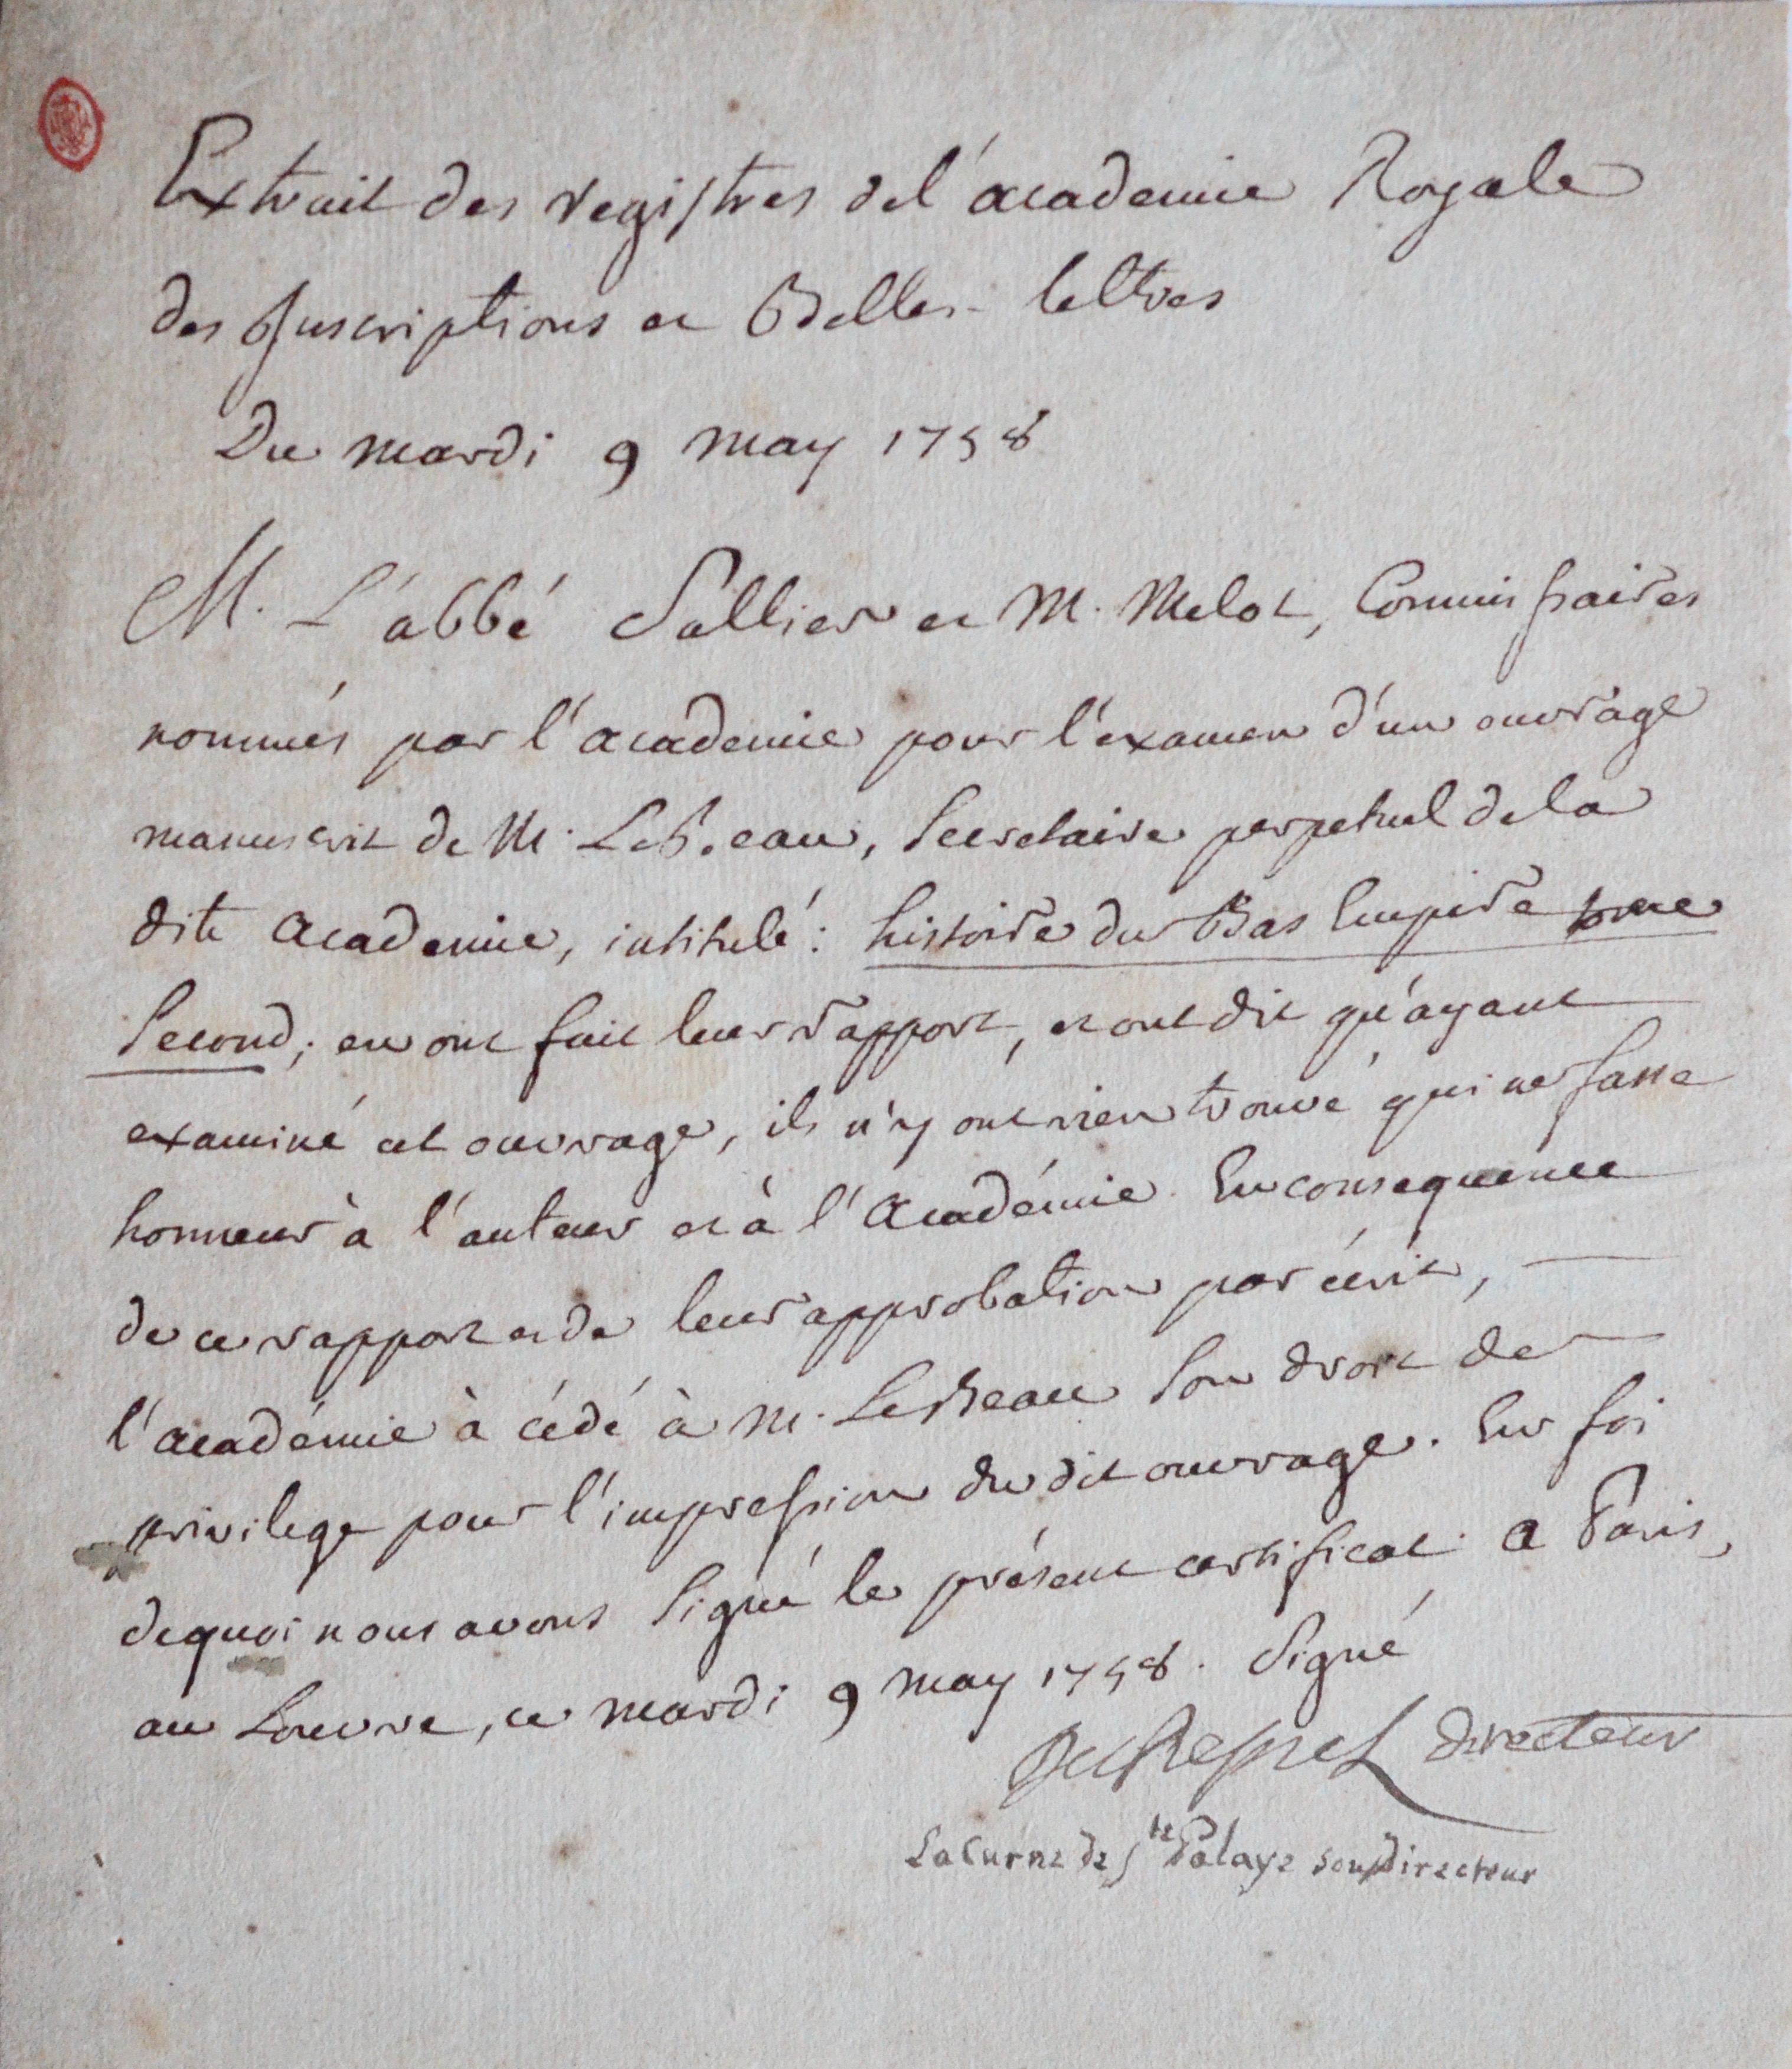 Extrait des registres de l'academie Royale
des Inscriptions et Belles-lettres
Du mardi 9 may 1758
M. L'abbé Sallier et M. Melot, Commissaires
nommés par l'academie pour l'examen d'un ouvrage
manuscrit de M. LeBeau, Secretaire perpetuel de la
dite academie, intitulé : histoire du Bas Empire tome
Second; en ont fait leur rapport, et ont dit qu'ayant
examiné cet ouvrage, ils n'y ont rien trouvé qui ne fasse
honneur à l'auteur et à l'Académie. En consequence
de ce rapport et de leur approbation par écrit,
l'académie à cédé à M. LeBeau Son droit de
privilege pour l'impression du dit ouvrage. En foi
dequoi nous avons Signé le présent certificat. a Paris,
au Louvre, ce mardi 9 may 1758. Signé
directeur
LaCurne de Ste Palaye sousdirecteur